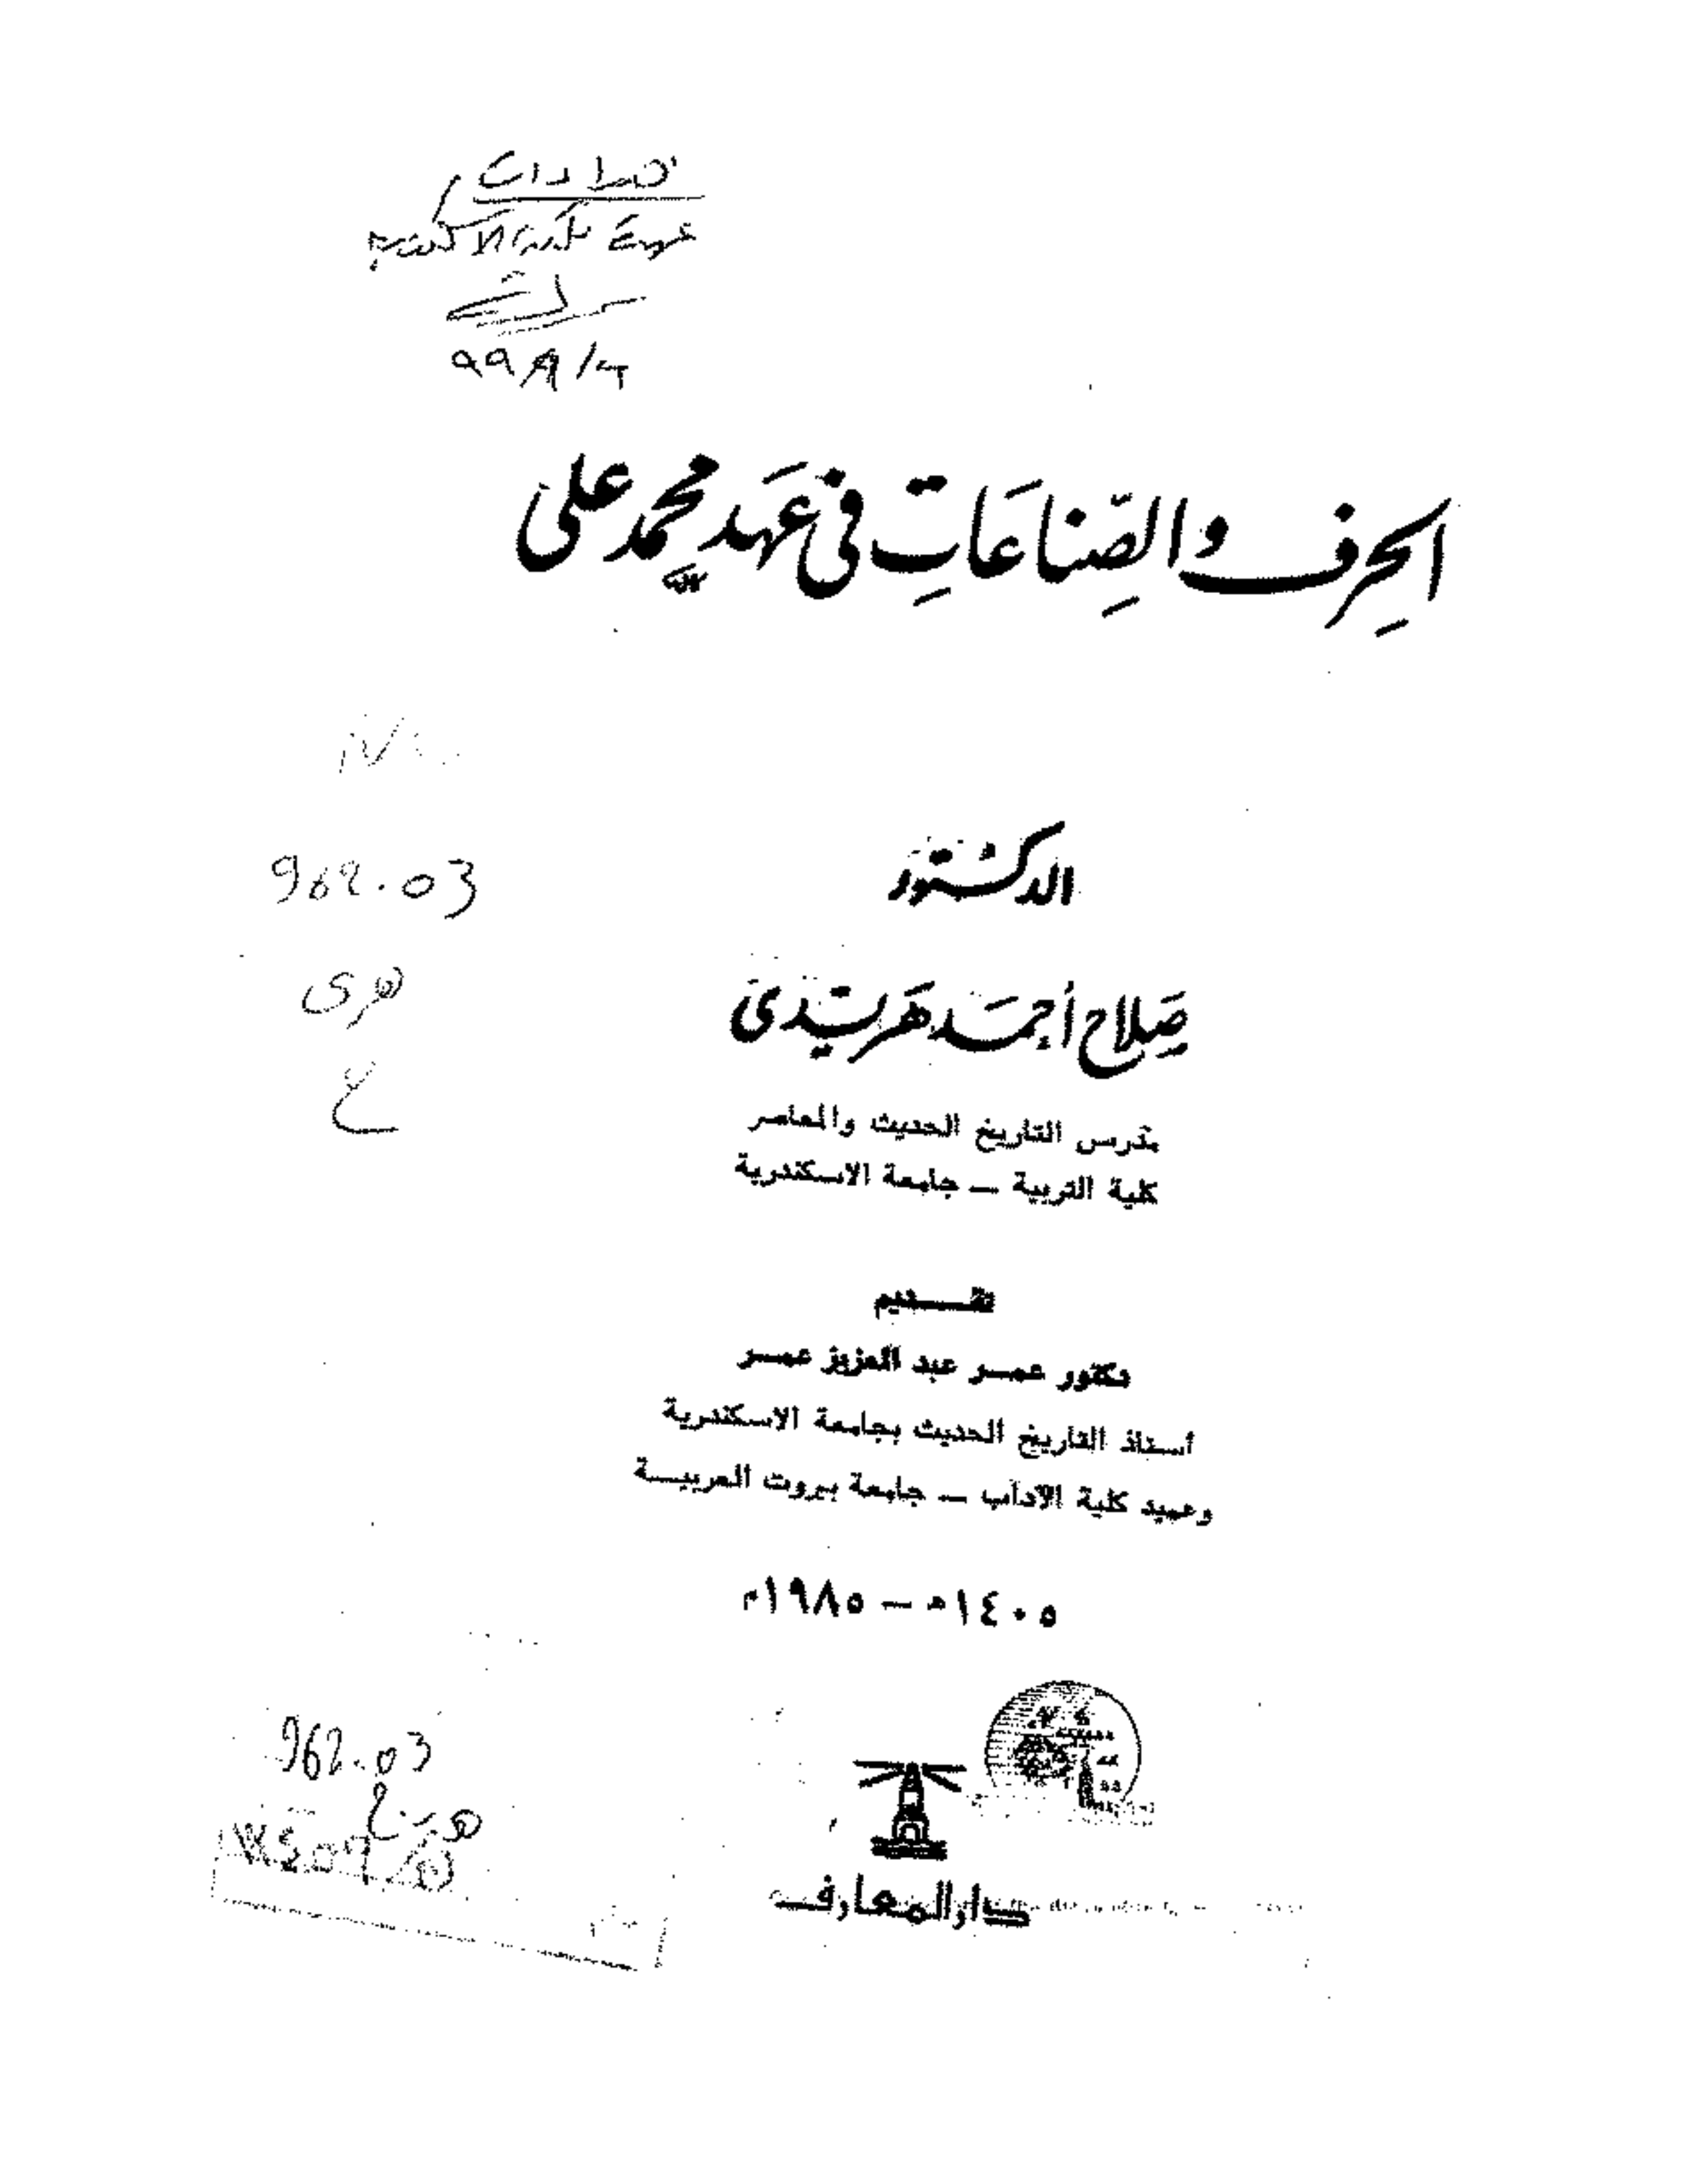 الحِرف والصِّناعَاتِ في عَهد محمّد على
962.03
الدكتور
هرى
صَلاح أحمَد هَريدى
ع
مدرس التاريخ الحديث والمعاصر
كلية التربية — جامعة الاسكندرية
تقـــديم
دكتور عمـر عبد العزيز عمـر
أستاذ التاريخ الحديث بجامعة الاسكندرية
وعميد كلية الآداب — جامعة بيروت العربيـة
١٤٠٥ه — ١٩٨٥م
962.03
دار المعارف